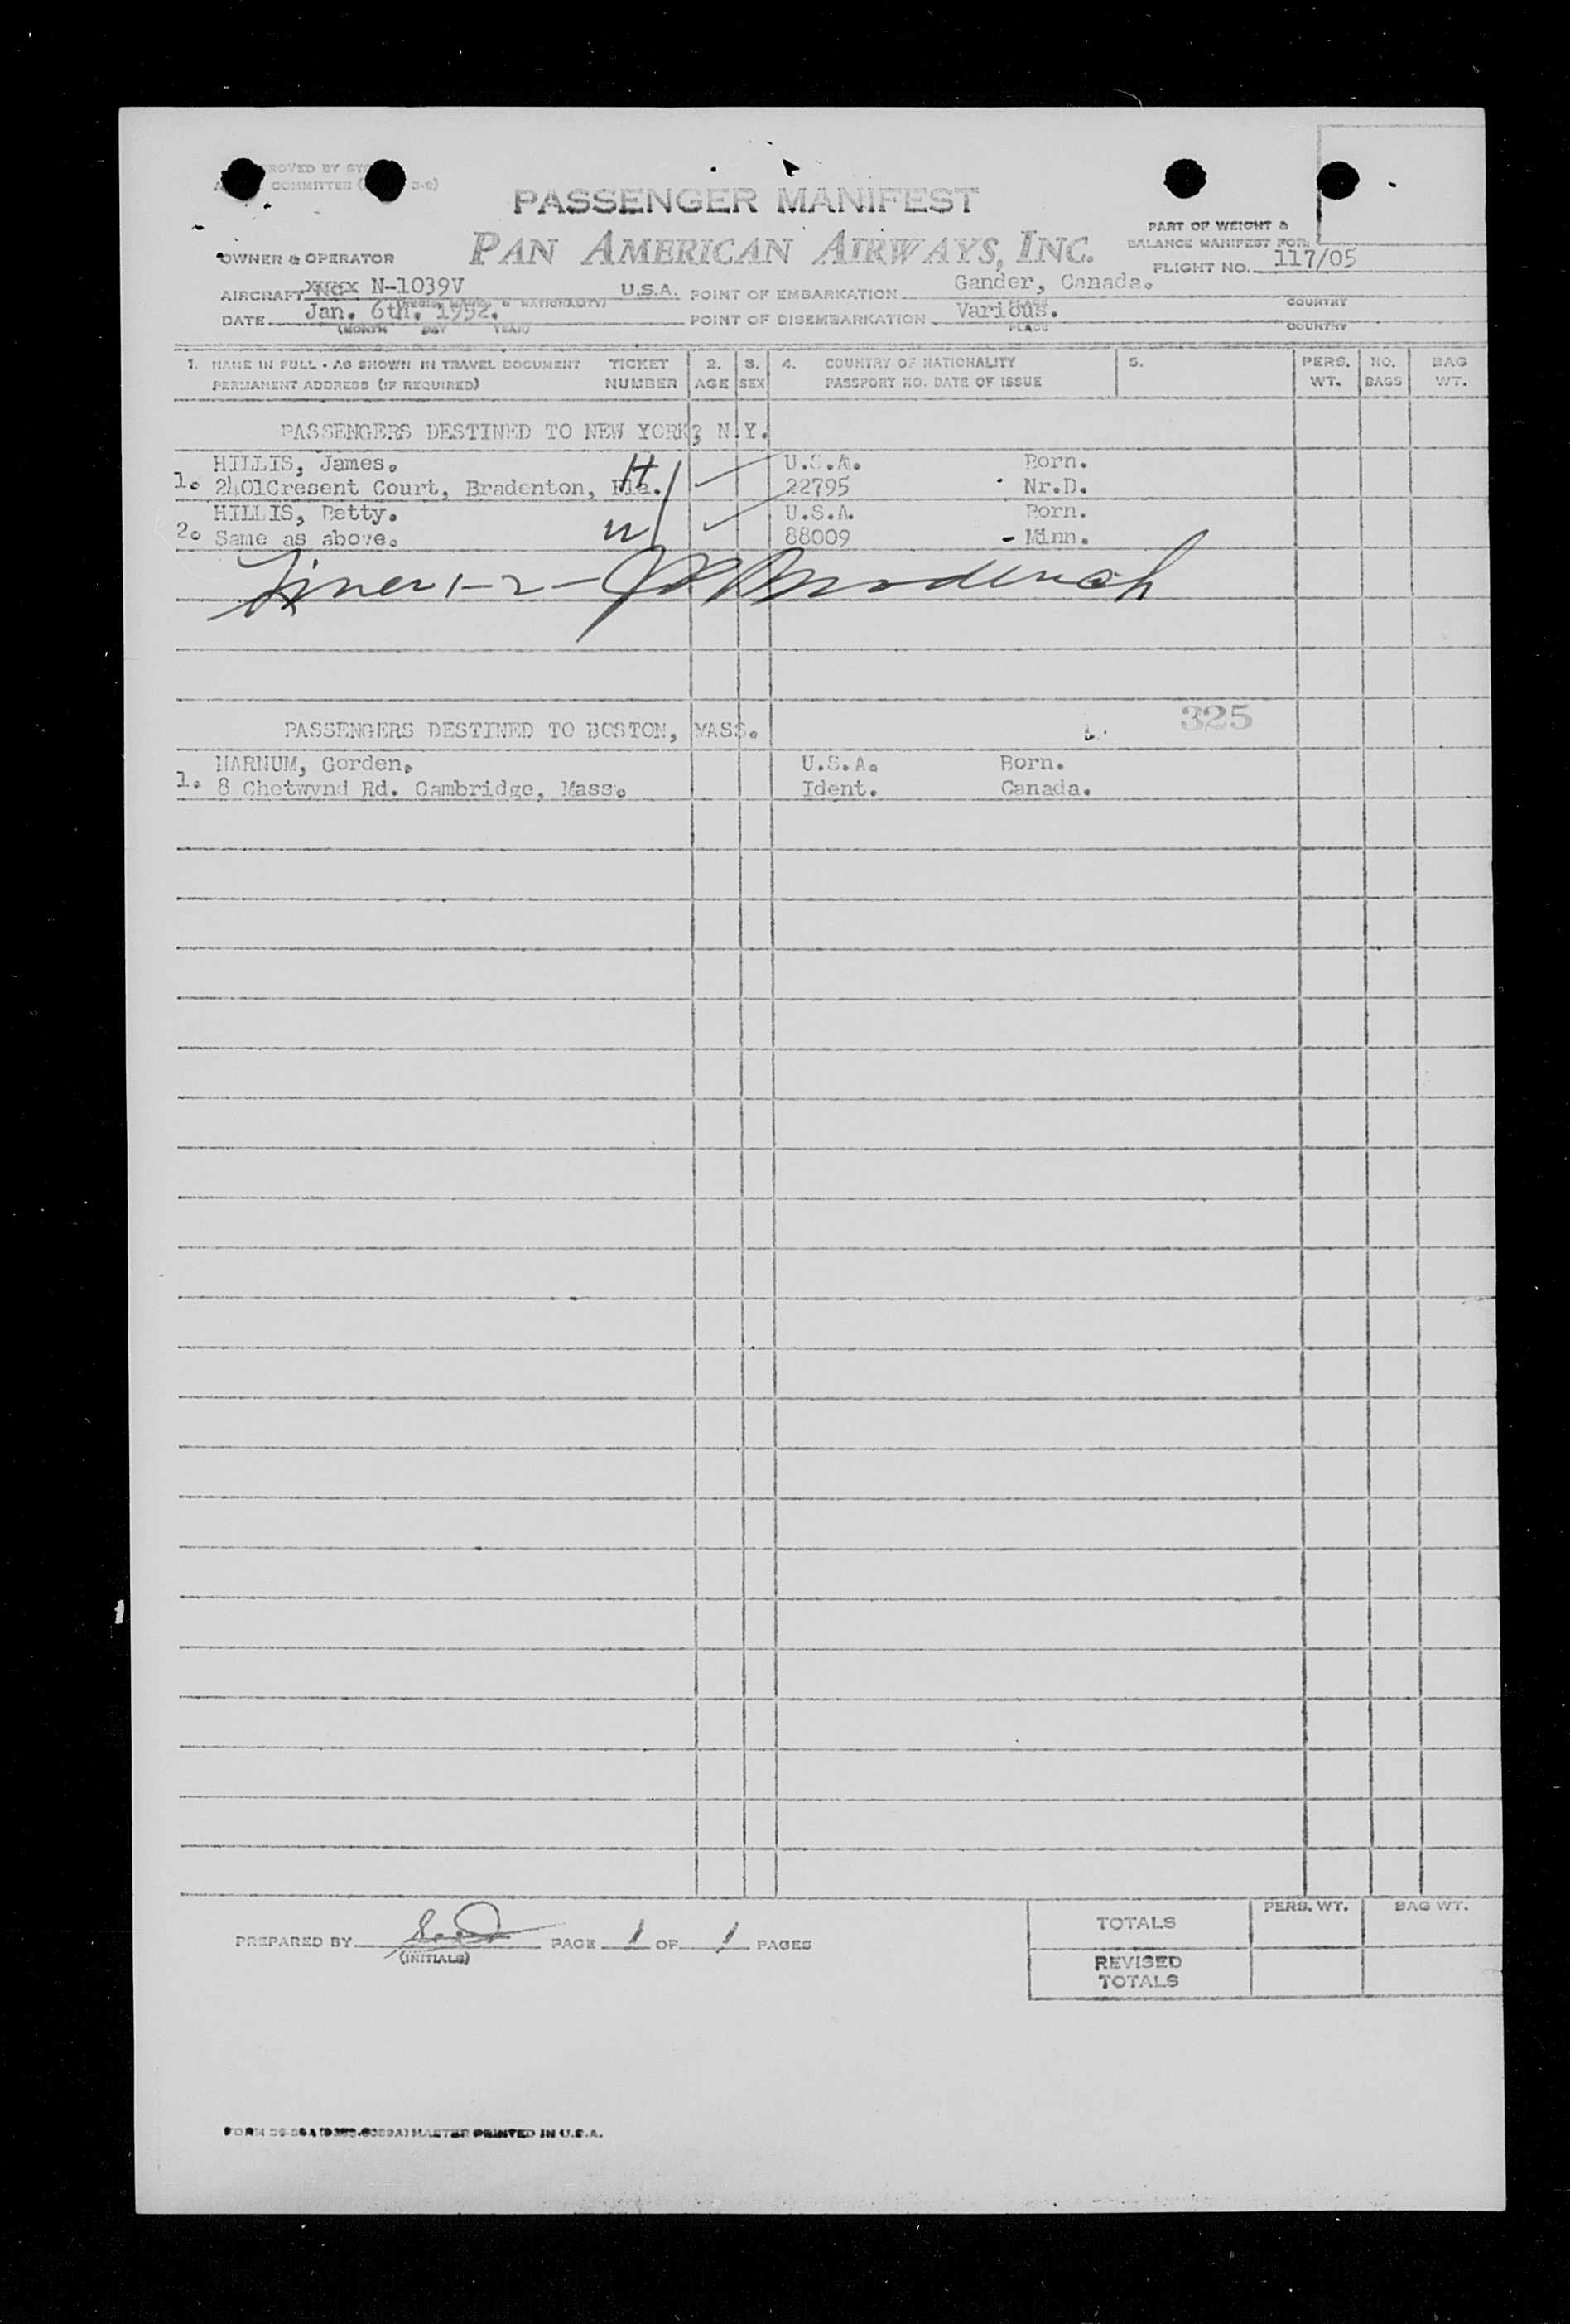 PASSENGER MANIFEST
OWNER & OPERATOR PAN AMERICAN AIRWAYS, INC.
PART OF WEIGHT &
BALANCE MANIFEST FOR:
FLIGHT NO. 117/05
AIRCRAFT N-1039V U.S.A. POINT OF EMBARKATION Gander, Canada.
PLACE COUNTRY
DATE Jan. 6th. 1952. POINT OF DISEMBARKATION Various.
(MONTH DAY YEAR) PLACE COUNTRY
1. NAME IN FULL - AS SHOWN IN TRAVEL DOCUMENT TICKET 2. 3. 4. COUNTRY OF NATIONALITY 5. PERS. NO. BAG
PERMANENT ADDRESS (IF REQUIRED) NUMBER AGE SEX PASSPORT NO. DATE OF ISSUE WT. BAGS WT.
PASSENGERS DESTINED TO NEW YORK? N.Y.
HILLIS, James. U.S.A. Born.
1. 2401Cresent Court, Bradenton, Fla. 22795 Nr.D.
HILLIS, Betty. U.S.A. Born.
2. Same as above. 88009 - Minn.
325
PASSENGERS DESTINED TO BOSTON, MASS.
HARNUM, Gorden. U.S.A. Born.
1. 8 Chetwynd Rd. Cambridge, Mass. Ident. Canada.
PREPARED BY PAGE 1 OF 1 PAGES
(INITIALS)
PERS. WT. BAG WT.
TOTALS
REVISED
TOTALS
MASTER PRINTED IN U.S.A.